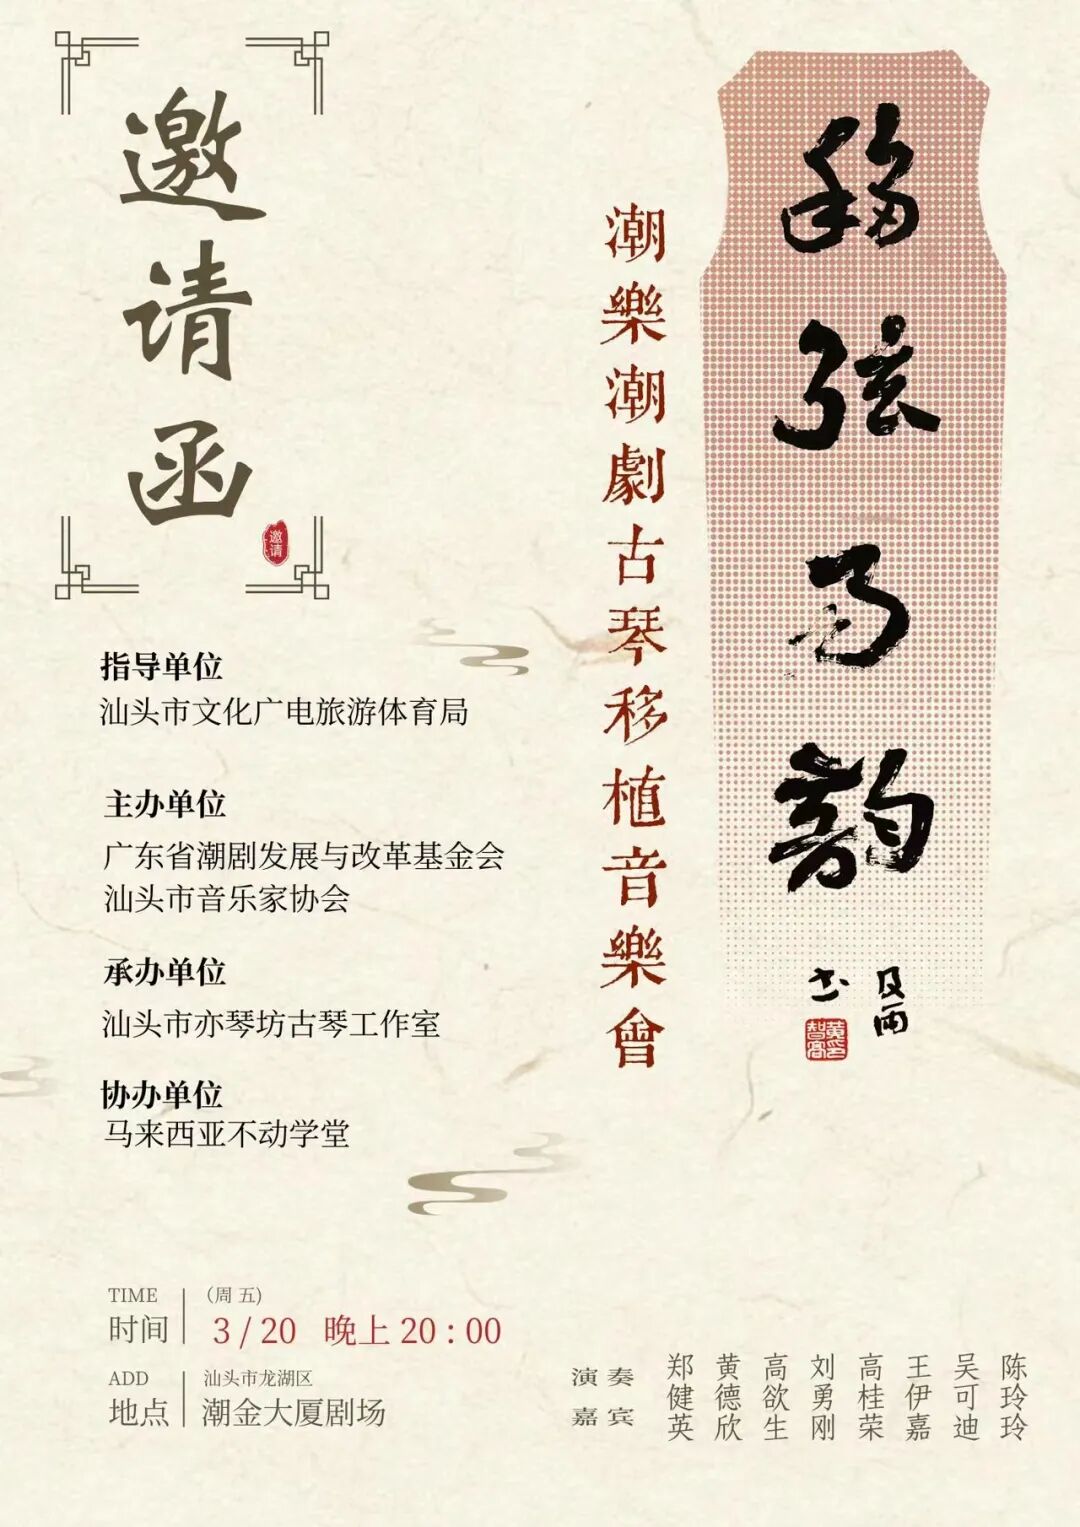 邀请函
邀请
移弦
韵
及雨
书
潮樂潮劇古琴移植音樂會
指导单位
汕头市文化广电旅游体育局
主办单位
广东省潮剧发展与改革基金会
汕头市音乐家协会
承办单位
汕头市亦琴坊古琴工作室
协办单位
马来西亚不动学堂
TIME
时间
（周五）
3/20 晚上 20:00
ADD
地点
汕头市龙湖区
潮金大厦剧场
演奏
嘉宾
郑健英
黄德欣
高欲生
刘勇刚
高桂荣
王伊嘉
吴可迪
陈玲玲